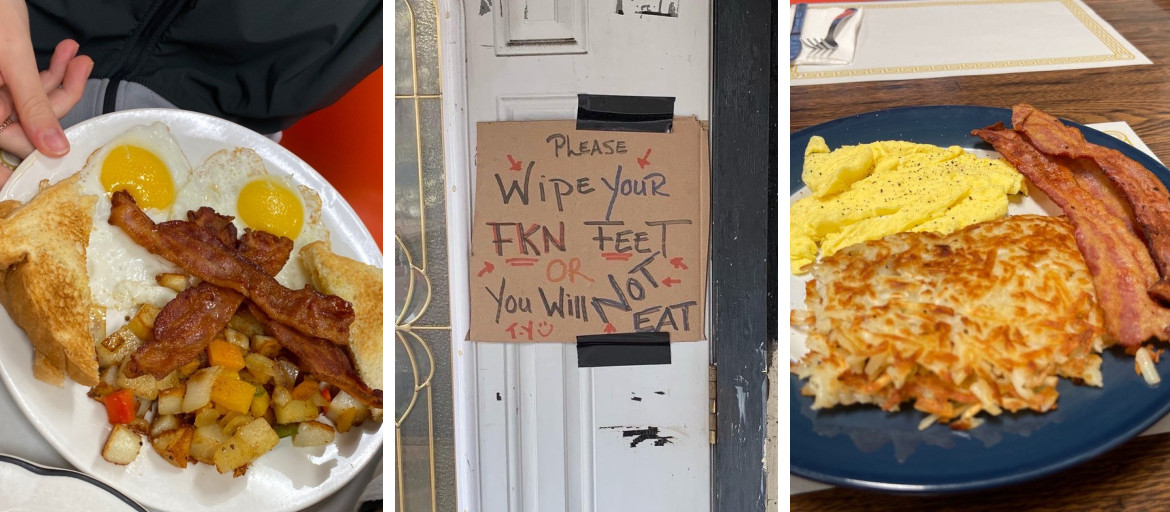 PLEASE
WIPE YOUR
FKN FEET
OR
YOU WILL NOT
EAT
T.Y ☺